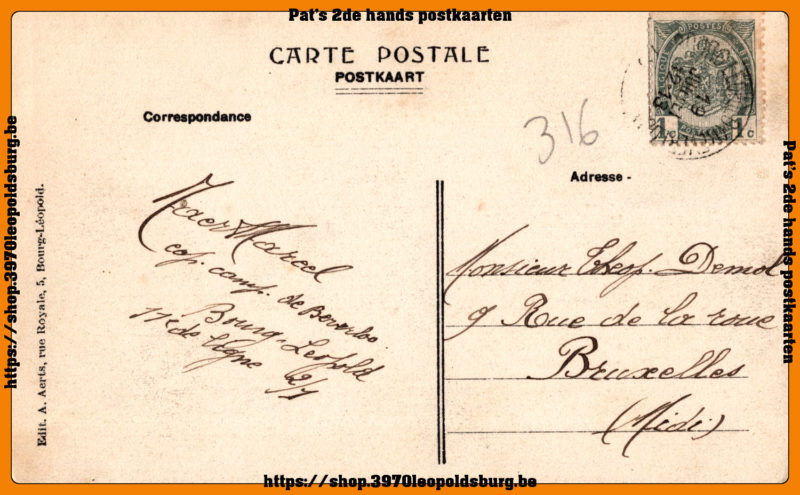 Pat's 2de hands postkaarten
CARTE POSTALE
POSTKAART
Correspondance
316
Adresse -
Marcel
cap. camp. de Beverloo
Bourg-Leopold
11e de ligne 2/1
Monsieur Demol
9 Rue de la roue
Bruxelles
(Midi)
Edit. A. Aerts, rue Royale, 5, Bourg-Léopold.
POSTES
1c 1c
https://shop.3970leopoldsburg.be
Pat's 2de hands postkaarten
https://shop.3970leopoldsburg.be